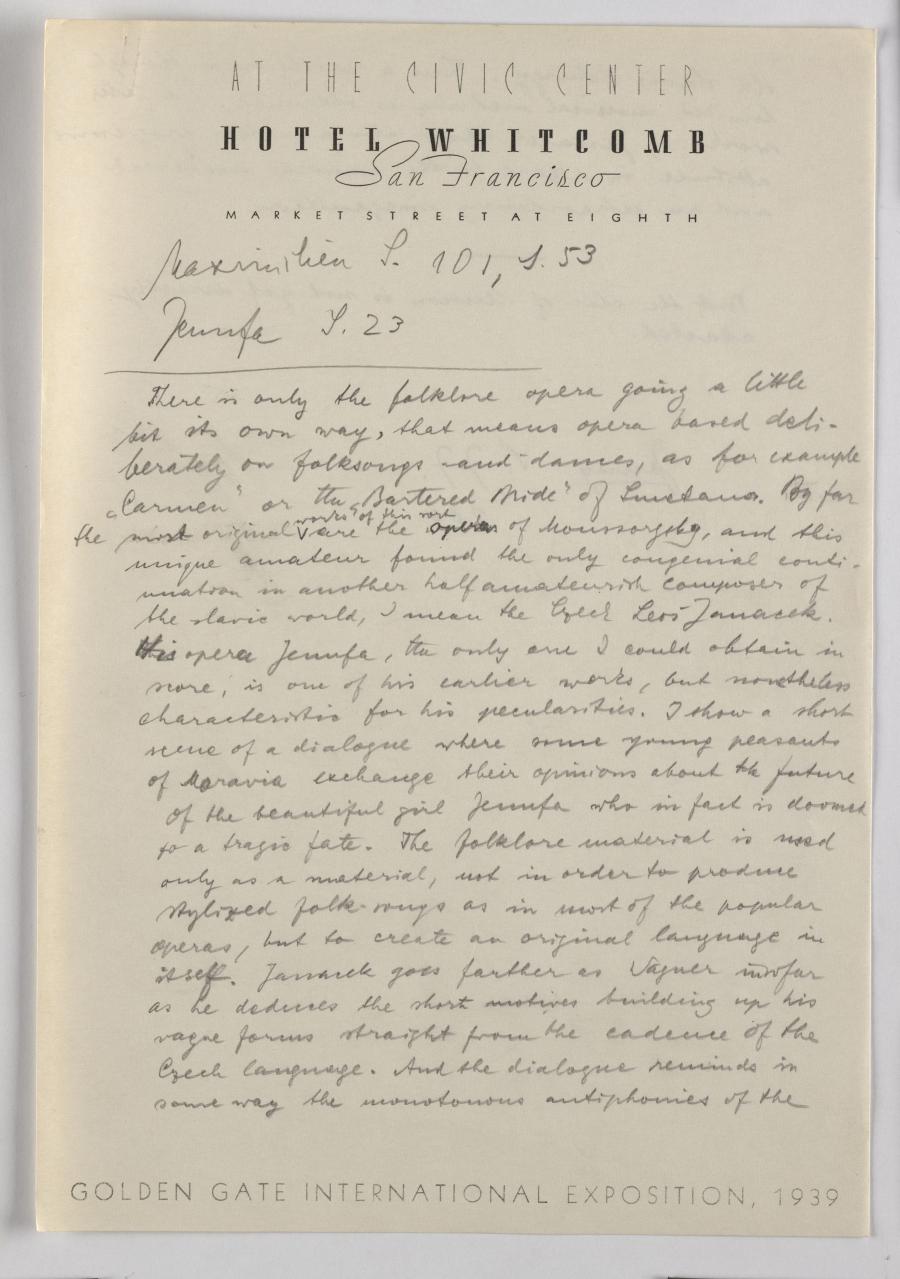 AT THE CIVIC CENTER
HOTEL WHITCOMB
San Francisco
MARKET STREET AT EIGHTH
Maximilien S. 101, S. 53
Jenufa S. 23
There is only the folklore opera going a little
bit its own way, that means opera based deli-
berately on folksongs and dances, as for example
"Carmen" or the "Bartered Bride" of Smetana. By far
works of this sort
the most original are the operas of Moussorgsky, and this
unique amateur found the only congenial conti-
nuation in another halfamateurish composer of
the slavic world, I mean the Czech Leoš Janacek.
His opera Jenufa, the only one I could obtain in
score, is one of his earlier works, but nonetheless
characteristic for his pecularities. I show a short
scene of a dialogue where some young peasants
of Moravia exchange their opinions about the future
of the beautiful girl Jenufa who in fact is doomed
to a tragic fate. The folklore material is used
only as a material, not in order to produce
stylized folk-songs as in most of the popular
operas, but to create an original language in
itself. Janacek goes farther as Wagner insofar
as he deduces the short motives building up his
vague forms straight from the cadence of the
Czech language. And the dialogue reminds in
some way the monotonous antiphonies of the
GOLDEN GATE INTERNATIONAL EXPOSITION, 1939